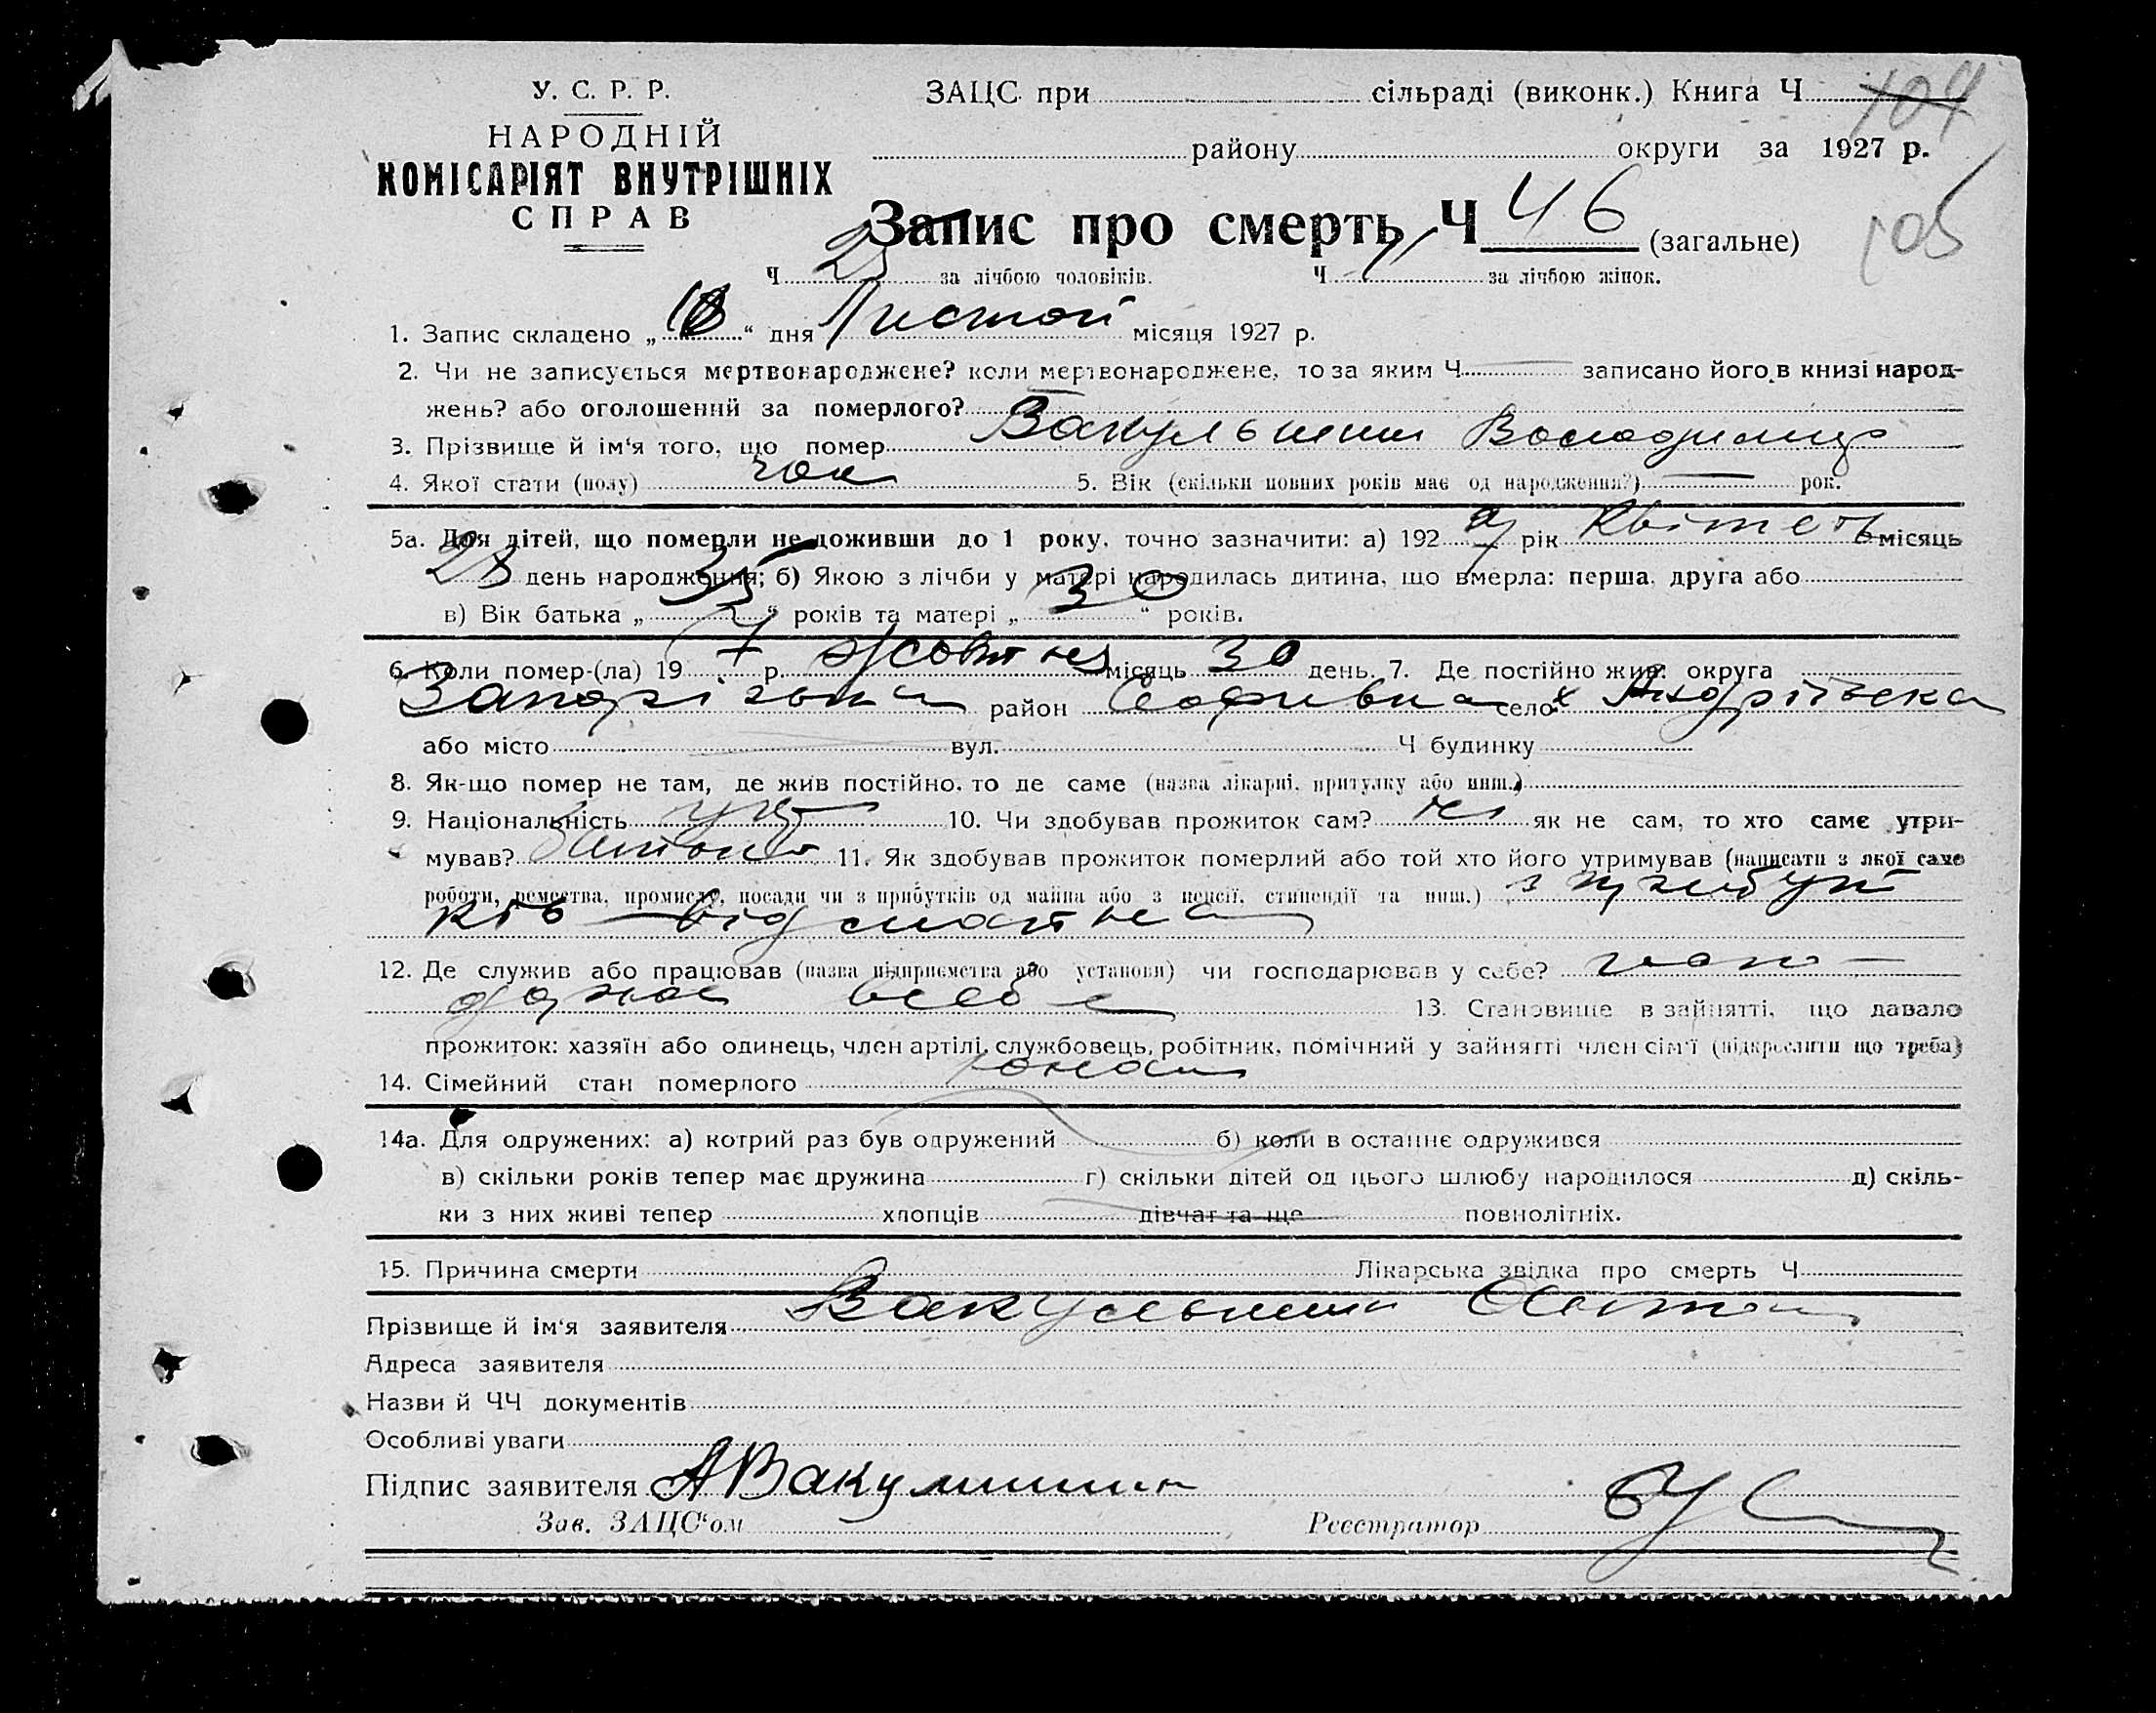 У. С. Р. Р.
НАРОДНІЙ
КОМІСАРІЯТ ВНУТРІШНІХ
СПРАВ
ЗАЦС при сільраді (виконк.) Книга Ч 104
району округи за 1927 р.
105
Запис про смерть Ч 46 (загальне)
Ч 25 за лічбою чоловіків. Ч за лічбою жінок.
1. Запис складено „ “ дня Листоп місяця 1927 р.
2. Чи не записується мертвонароджене? коли мертвонароджене, то за яким Ч записано його в книзі народ-
жень? або оголошений за померлого?
3. Прізвище й ім'я того, що помер Вакульшин Володимир
4. Якої стати (полу) чол 5. Вік (скільки повних років має од народження?) — рок.
5а. Для дітей, що померли не доживши до 1 року, точно зазначити: а) 1927 рік Квітень місяць
28 день народження; б) Якою з лічби у матері народилась дитина, що вмерла: перша, друга або
в) Вік батька „35“ років та матері „30“ років.
6. Коли помер-(ла) 1927 р. Жовтня місяць 30 день. 7. Де постійно жив: округа
Запорізька район Софиевка село х Андріївка
або місто вул. Ч будинку
8. Як-що помер не там, де жив постійно, то де саме (назва лікарні, притулку або инш.)
9. Національність укр 10. Чи здобував прожиток сам? ні як не сам, то хто саме утри-
мував? батько 11. Як здобував прожиток померлий або той хто його утримував (написати з якої саме
роботи, ремества, промислу, посади чи з прибутків од майна або з пенсії, стипендії та инш.) з прибут
ків від майна
12. Де служив або працював (назва підприємства або установи) чи господарював у себе?
всебе 13. Становище в зайнятті, що давало
прожиток: хазяїн або одинець, член артілі, службовець, робітник, помічний у зайнятті член сім'ї (підкреслити що треба)
14. Сімейний стан померлого
14а. Для одружених: а) котрий раз був одружений б) коли в останнє одружився
в) скільки років тепер має дружина г) скільки дітей од цього шлюбу народилося д) скіль-
ки з них живі тепер хлопців дівчат та ще повнолітніх.
15. Причина смерти Лікарська звідка про смерть Ч
Прізвище й ім'я заявителя Вакульшин Антон
Адреса заявителя
Назви й ЧЧ документів
Особливі уваги
Підпис заявителя АВакулишин
Зав. ЗАЦС'ом Реєстратор